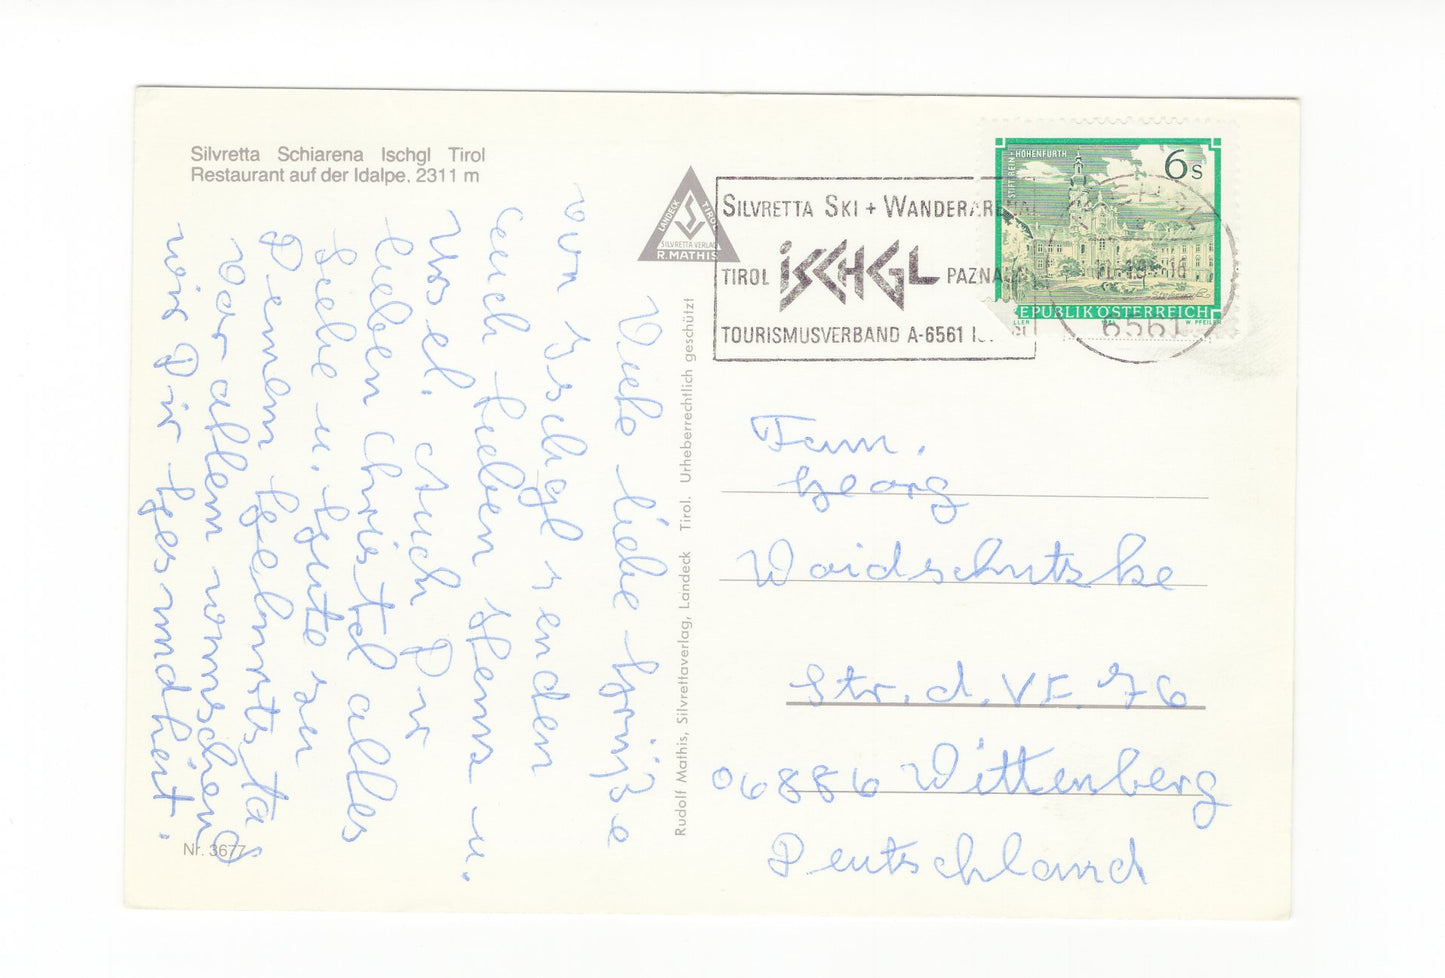 Silvretta Schiarena Ischgl Tirol
Restaurant auf der Idalpe, 2311 m
LANDECK TIROL
SILVRETTA VERLAG
R. MATHIS
SILVRETTA SKI + WANDERARENA
TIROL ISCHGL PAZNAUN
TOURISMUSVERBAND A-6561
6561
STIFT REIN-HOHENFURTH
6 S
REPUBLIK ÖSTERREICH
W. PFEILER
Viele liebe Grüße
von Ischgl senden
euch lieben Hema u.
Josel. Auch Dir
lieben Christel alles
Liebe u. Gute zu
Deinem Geburtstag
Vor allem wünschen
wir Dir Gesundheit.
Rudolf Mathis, Silvrettaverlag, Landeck Tirol. Urheberrechtlich geschützt
Fam.
Georg
Waidschutzke
Str. d. VF. 76
06886 Wittenberg
Deutschland
Nr. 3677